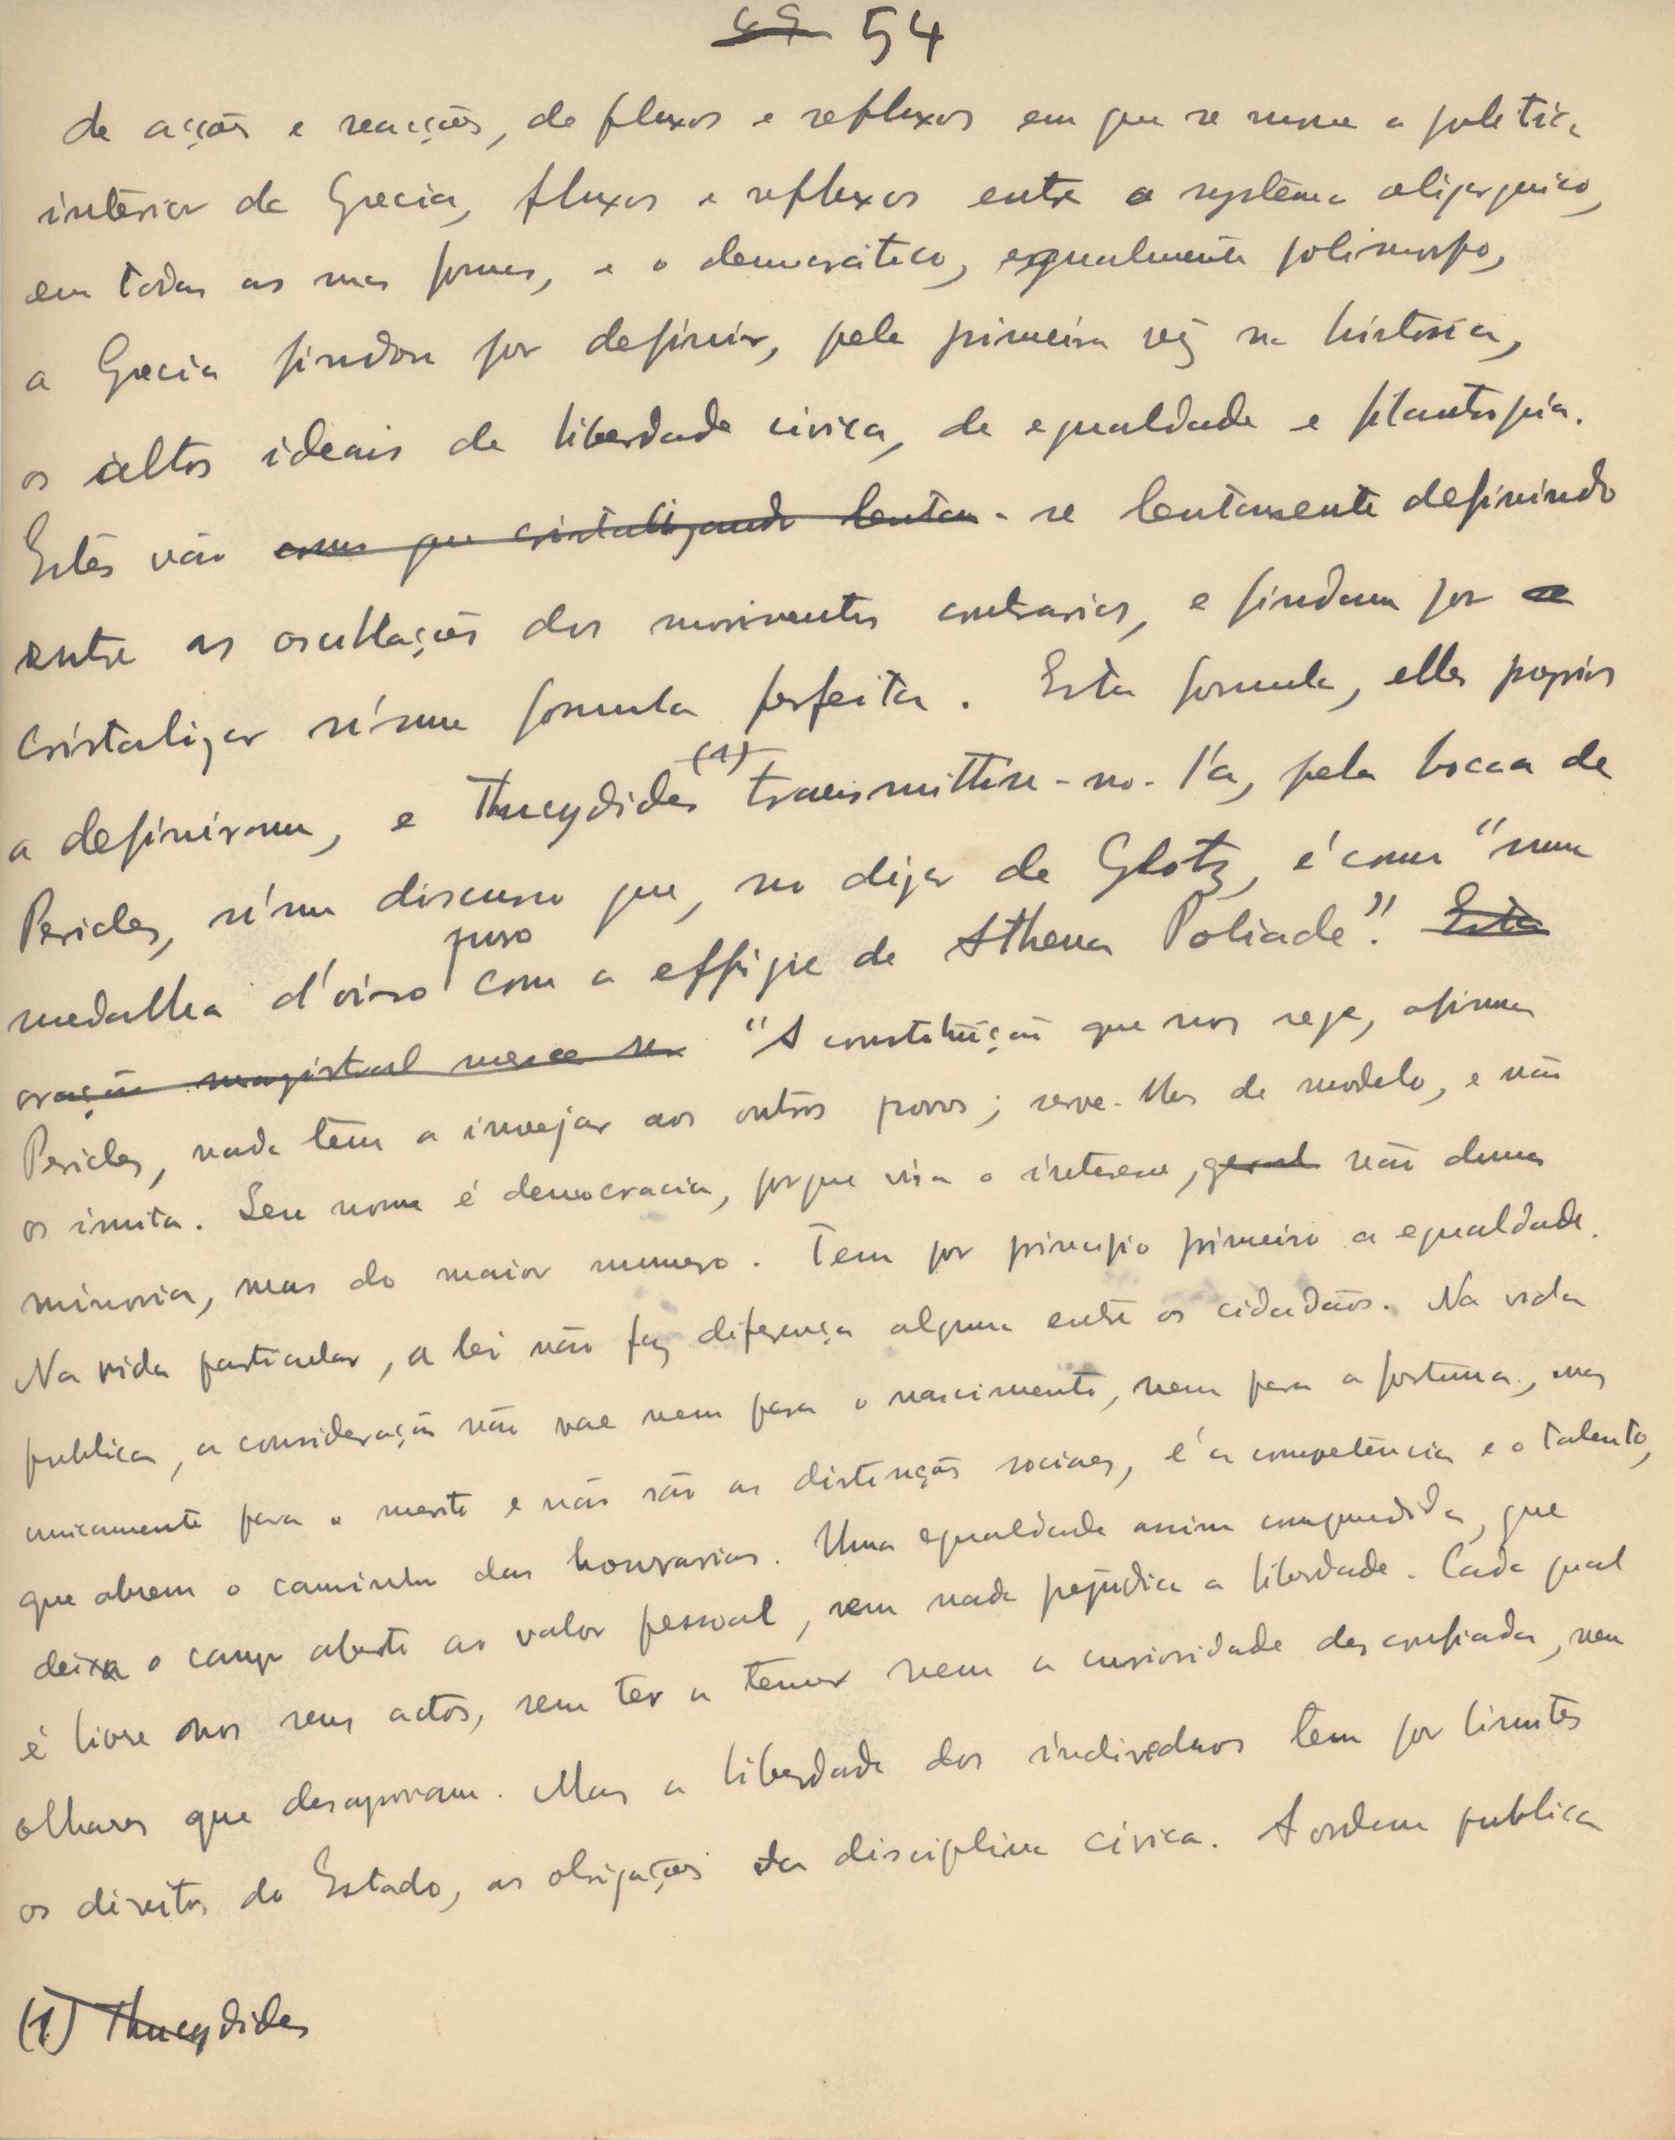 49 54
de acções e reacções, de fluxos e refluxos em que se move a politica
interior da Grecia, fluxos e refluxos entre o systema oligarquico,
em todas as suas formas, e o democratico, egualmente polimorfo,
a Grecia findou por definir, pela primeira vez na historia,
os altos ideais de liberdade civica, de egualdade e filantropia.
Estes vão como que cristallizando lentam - se lentamente definindo
entre as oscillações dos movimentos contrarios, e findam por se
cristalizar n'uma formula perfeita. Esta formula, elles proprios
a definiram, e Thucydides (1) transmittiu-no-l'a, pela bocca de
Pericles, n'um discurso que, no dizer de Glotz, é como "uma
medalha d'oiro puro com a effigie de Athena Poliade". Esta
oração magistral merece ser "A constituição que nos rege, afirma
Pericles, nada tem a invejar aos outros povos; serve-lhes de modelo, e não
os imita. Seu nome é democracia, porque visa o interesse, geral não duma
minoria, mas do maior numero. Tem por principio primeiro a egualdade.
Na vida particular, a lei não faz diferença alguma entre os cidadãos. Na vida
publica, a consideração não vae nem para o nascimento, nem para a fortuna, mas
unicamente para o merito e não são as distinções sociaes, é a competência e o talento,
que abrem o caminho das honrarias. Uma egualdade assim comprendida, que
deixa o campo aberto ao valor pessoal, em nada prejudica a liberdade. Cada qual
é livre nos seus actos, sem ter a temer nem a curiosidade desconfiada, nem
olhares que desaprovam. Mas a liberdade dos individuos tem por limites
os direitos do Estado, as obrigações da disciplina civica. A ordem publica
(1) Thucydides